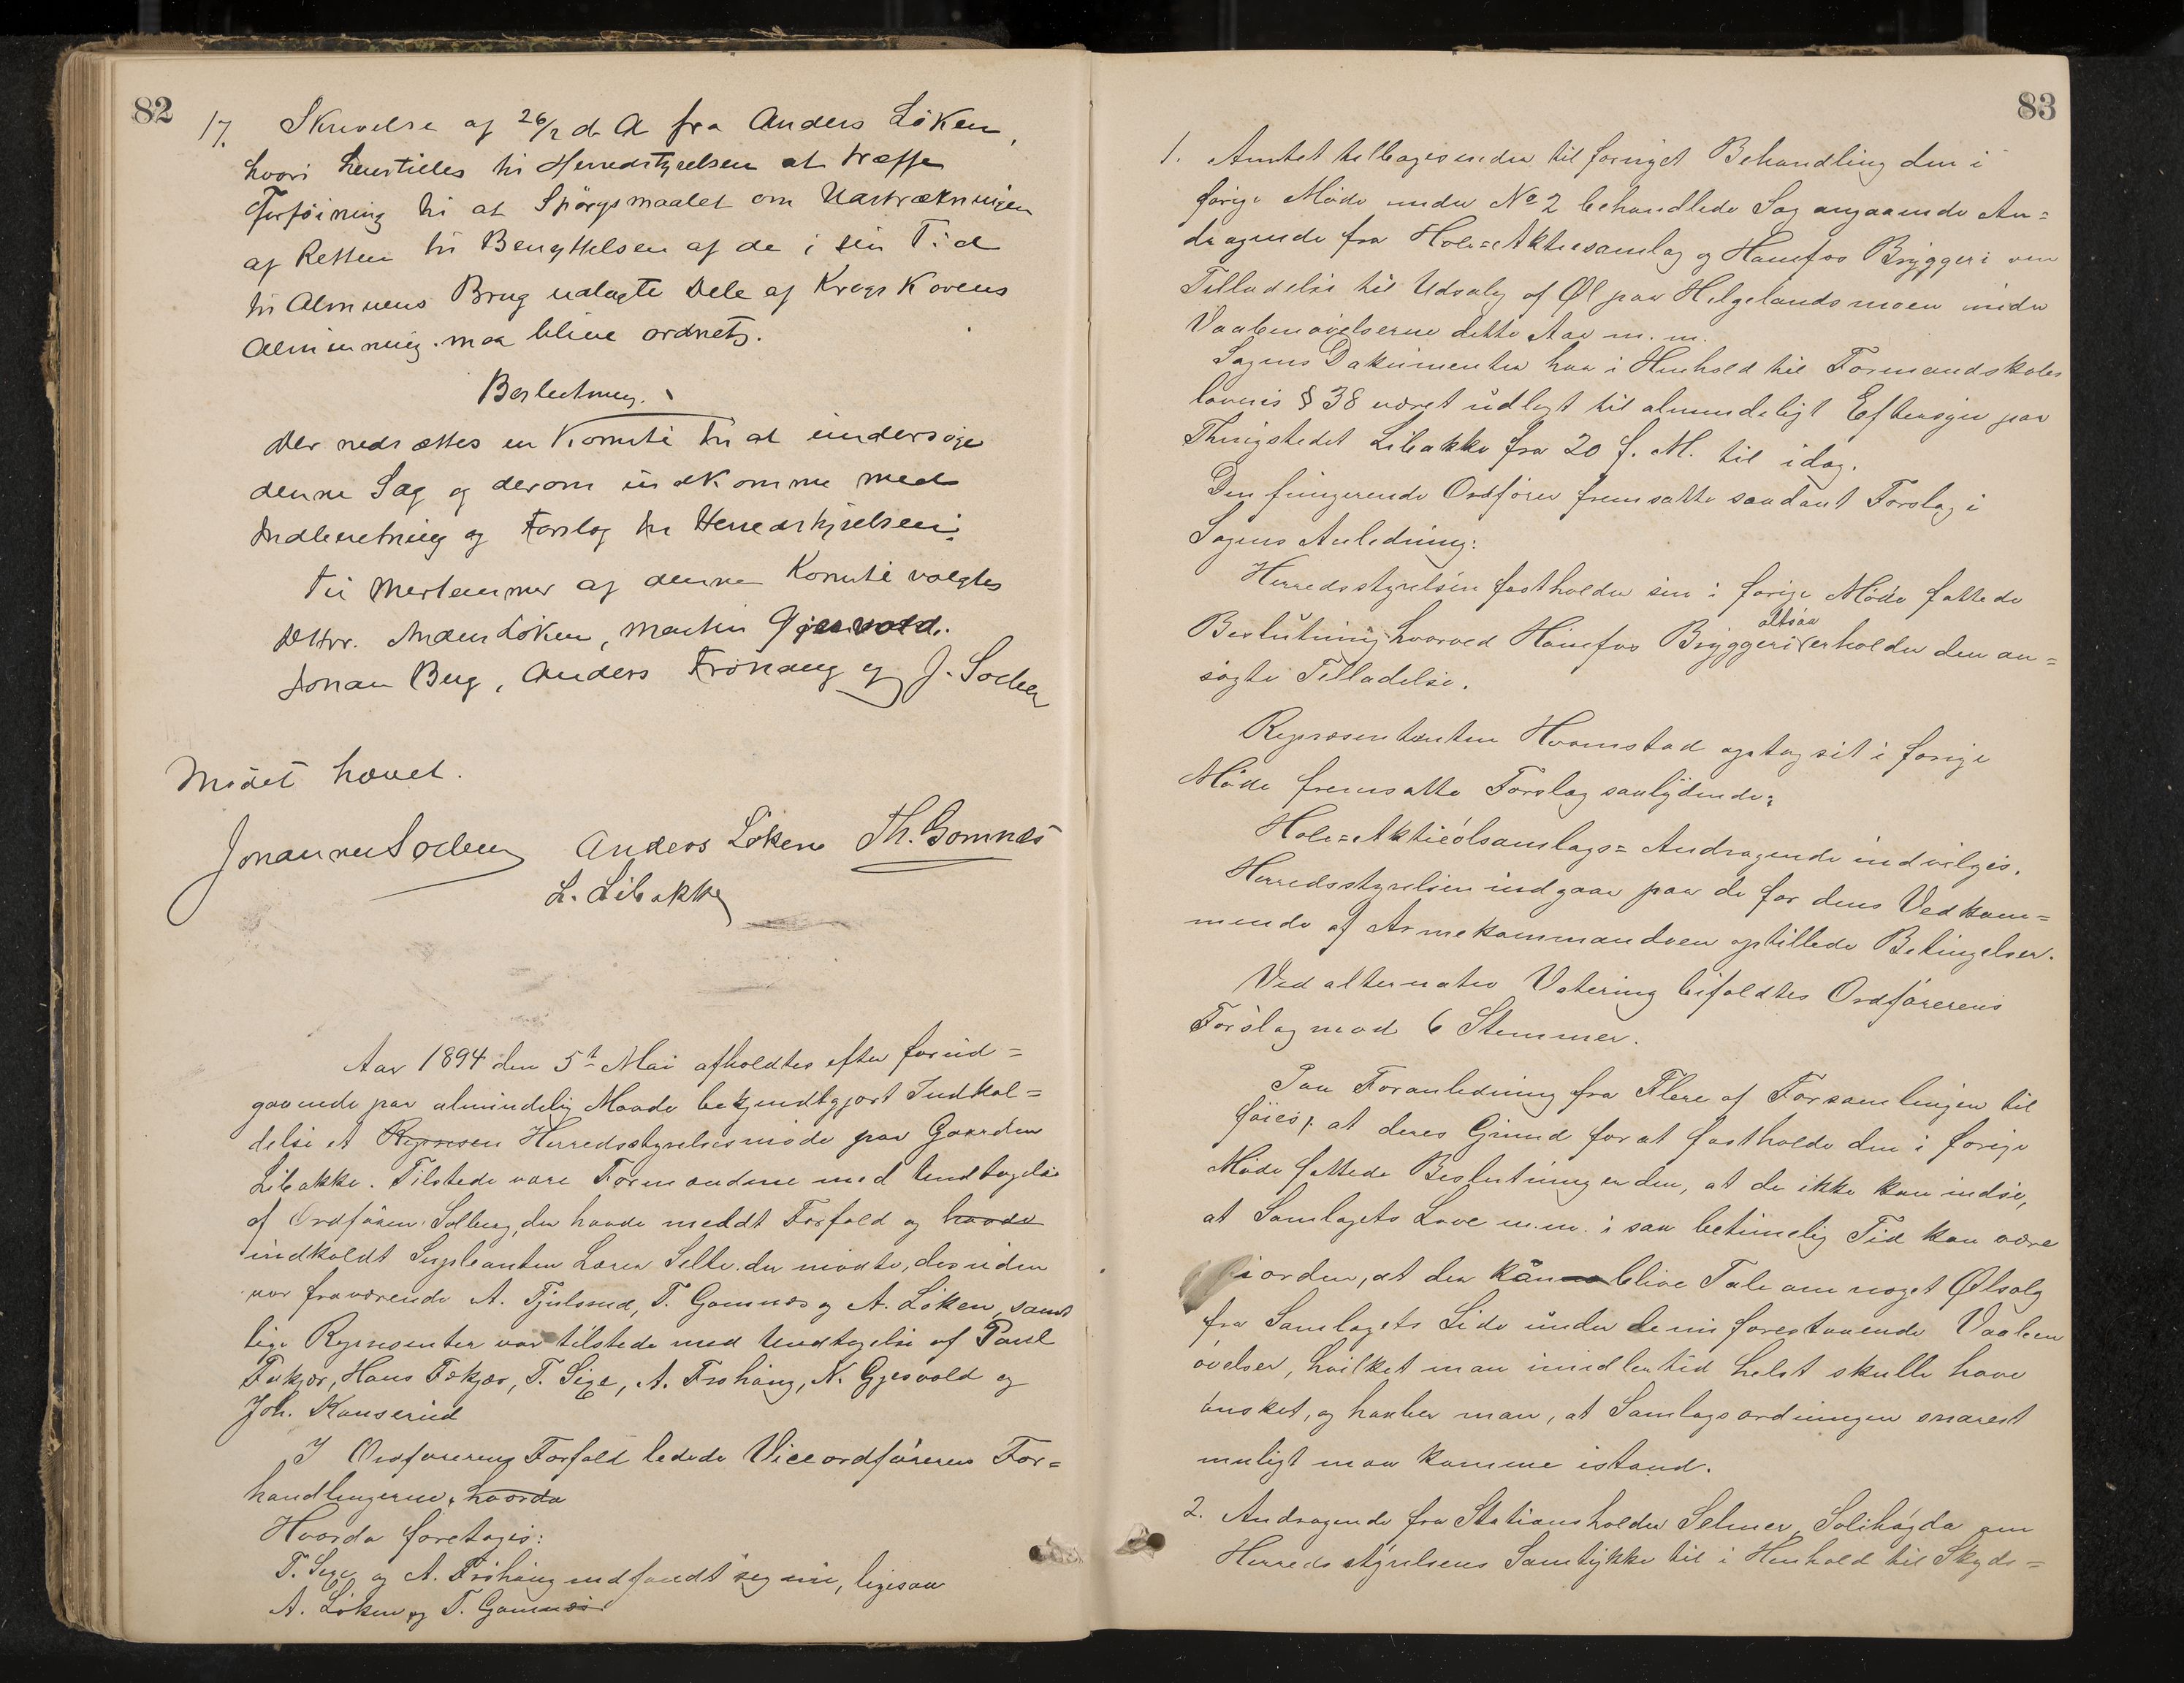 82
17. Skrivelse af 26/2 d. A fra Anders Løken,
hvori henstilles til Herredstyrelsen at træffe
Forføining til at Spørgsmaalet om Udstrækningen
af Retten til Benyttelsen af de i sin Tid
til Almuens Brug udlagte Dele af Krogskovens
Alminning maa blive ordnet.
Beslutning.
Der nedsættes en Komite til at undersøge
denne Sag og derom indkomme med
Indberetning og Forslag til Herredstyrelsen.
Til Medlemmer af denne Komite valgtes
DHrr. Anders Løken, Martin Gjesvold,
Johan Berg, Anders Frøhaug og J. Solberg
Mødet hævet.
Johannes Solberg Anders Løken Th. Gomnæs
L. Libakke
Aar 1894 den 5te Mai afholdtes efter forud=
gaaende paa almindelig Maade bekjendtgjort Indkal=
delse et Repræsen Herredsstyrelsesmøde paa Gaarden
Libakke. Tilstede vare Formændene med Undtagelse
af Ordføren Solberg, der havde meldt Forfald og havde
indkaldt Supleanten Lærer Selte der mødte, desuden
var fraværende A. Fjulsrud, T. Gomnæs og A. Løken, samt
lige Repræsenter var tilstede med Undtagelse af Paul
Fekjær, Hans Fekjær, T. Sige, A. Frøhaug, N. Gjesvold og
Joh. Kanserud
I Ordførerens Forfald ledede Viceordføreren For=
handlingerne, hvorda
Hvorda foretoges:
T. Sige og A. Frøhaug indfandt sig nu, ligesaa
A. Løken og T. Gomnæs
83
1. Amtet tilbagesender til fornyet Behandling den i
forige Møde under No 2 behandlede Sag angaaende An=
dragende fra Hole=Aktiesamlag og Hønefos Bryggeri om
Tilladelse til Udsalg af Øl paa Helgelandsmoen under
Vaabenøvelserne dette Aar m. m.
Sagens Dokumenter har i Henhold til Formandskabs
lovens § 38 været udlagt til almindeligt Eftersyn paa
Thingstedet Libakke fra 20 f. M. til idag.
Den fungerende Ordfører fremsatte saadant Forslag i
Sagens Anledning:
Herredsstyrelsen fastholder sin i forige Møde fattede
altsaa
Beslutning hvorved Hønefos Bryggeri erholder den an=
søgte Tilladelse.
Repræsentanten Hvamstad optog sit i forige
Møde fremsatte Forslag saalydende:
Hole=Aktieølsamlags= Andragende indvilges.
Herredsstyrelsen indgaar paa de for dens Vedkom=
mende af Armekommandoen opstillede Betingelser.
Ved alternativ Votering bifaldtes Ordførerens
Forslag mod 6 Stemmer.
Paa Foranledning fra Flere af Forsamlingen til
føies, at deres Grund for at fastholde den i forige
Møde fattede Beslutning er den, at de ikke kan indse,
at Samlagets Love m.m. i saa betimelig Tid kan være
iorden, at der kan blive Tale om noget Ølsalg
fra Samlagets Side under de nu forestaaende Vaaben
øvelser, hvilket man imidlertid helst skulle have
ønsket, og haaber man, at Samlagsordningen snarest
muligt maa komme istand.
2. Andragende fra Stationsholder Selmer, Solihøgda om
Herredsstyrelsens Samtykke til i Henhold til Skyds=